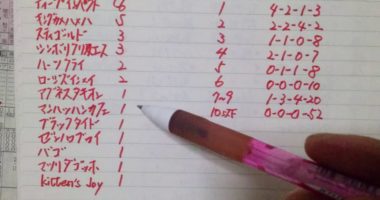 ディープインパクト 6 1 4-2-1-3
キングカメハメハ 5 2 2-2-4-2
ステイゴールド 3 3 1-1-0-8
シンボリクリスエス 3 4 2-1-0-7
ハーツクライ 2 5 0-1-1-8
ローズインメイ 2 6 0-0-0-10
アグネスタキオン 1 7~9 1-3-4-20
マンハッタンカフェ 1 10以下 0-0-0-52
ブラックタイド 1
ゼンノロブロイ 1
バゴ 1
マツリダゴッホ 1
Kitten's Joy 1